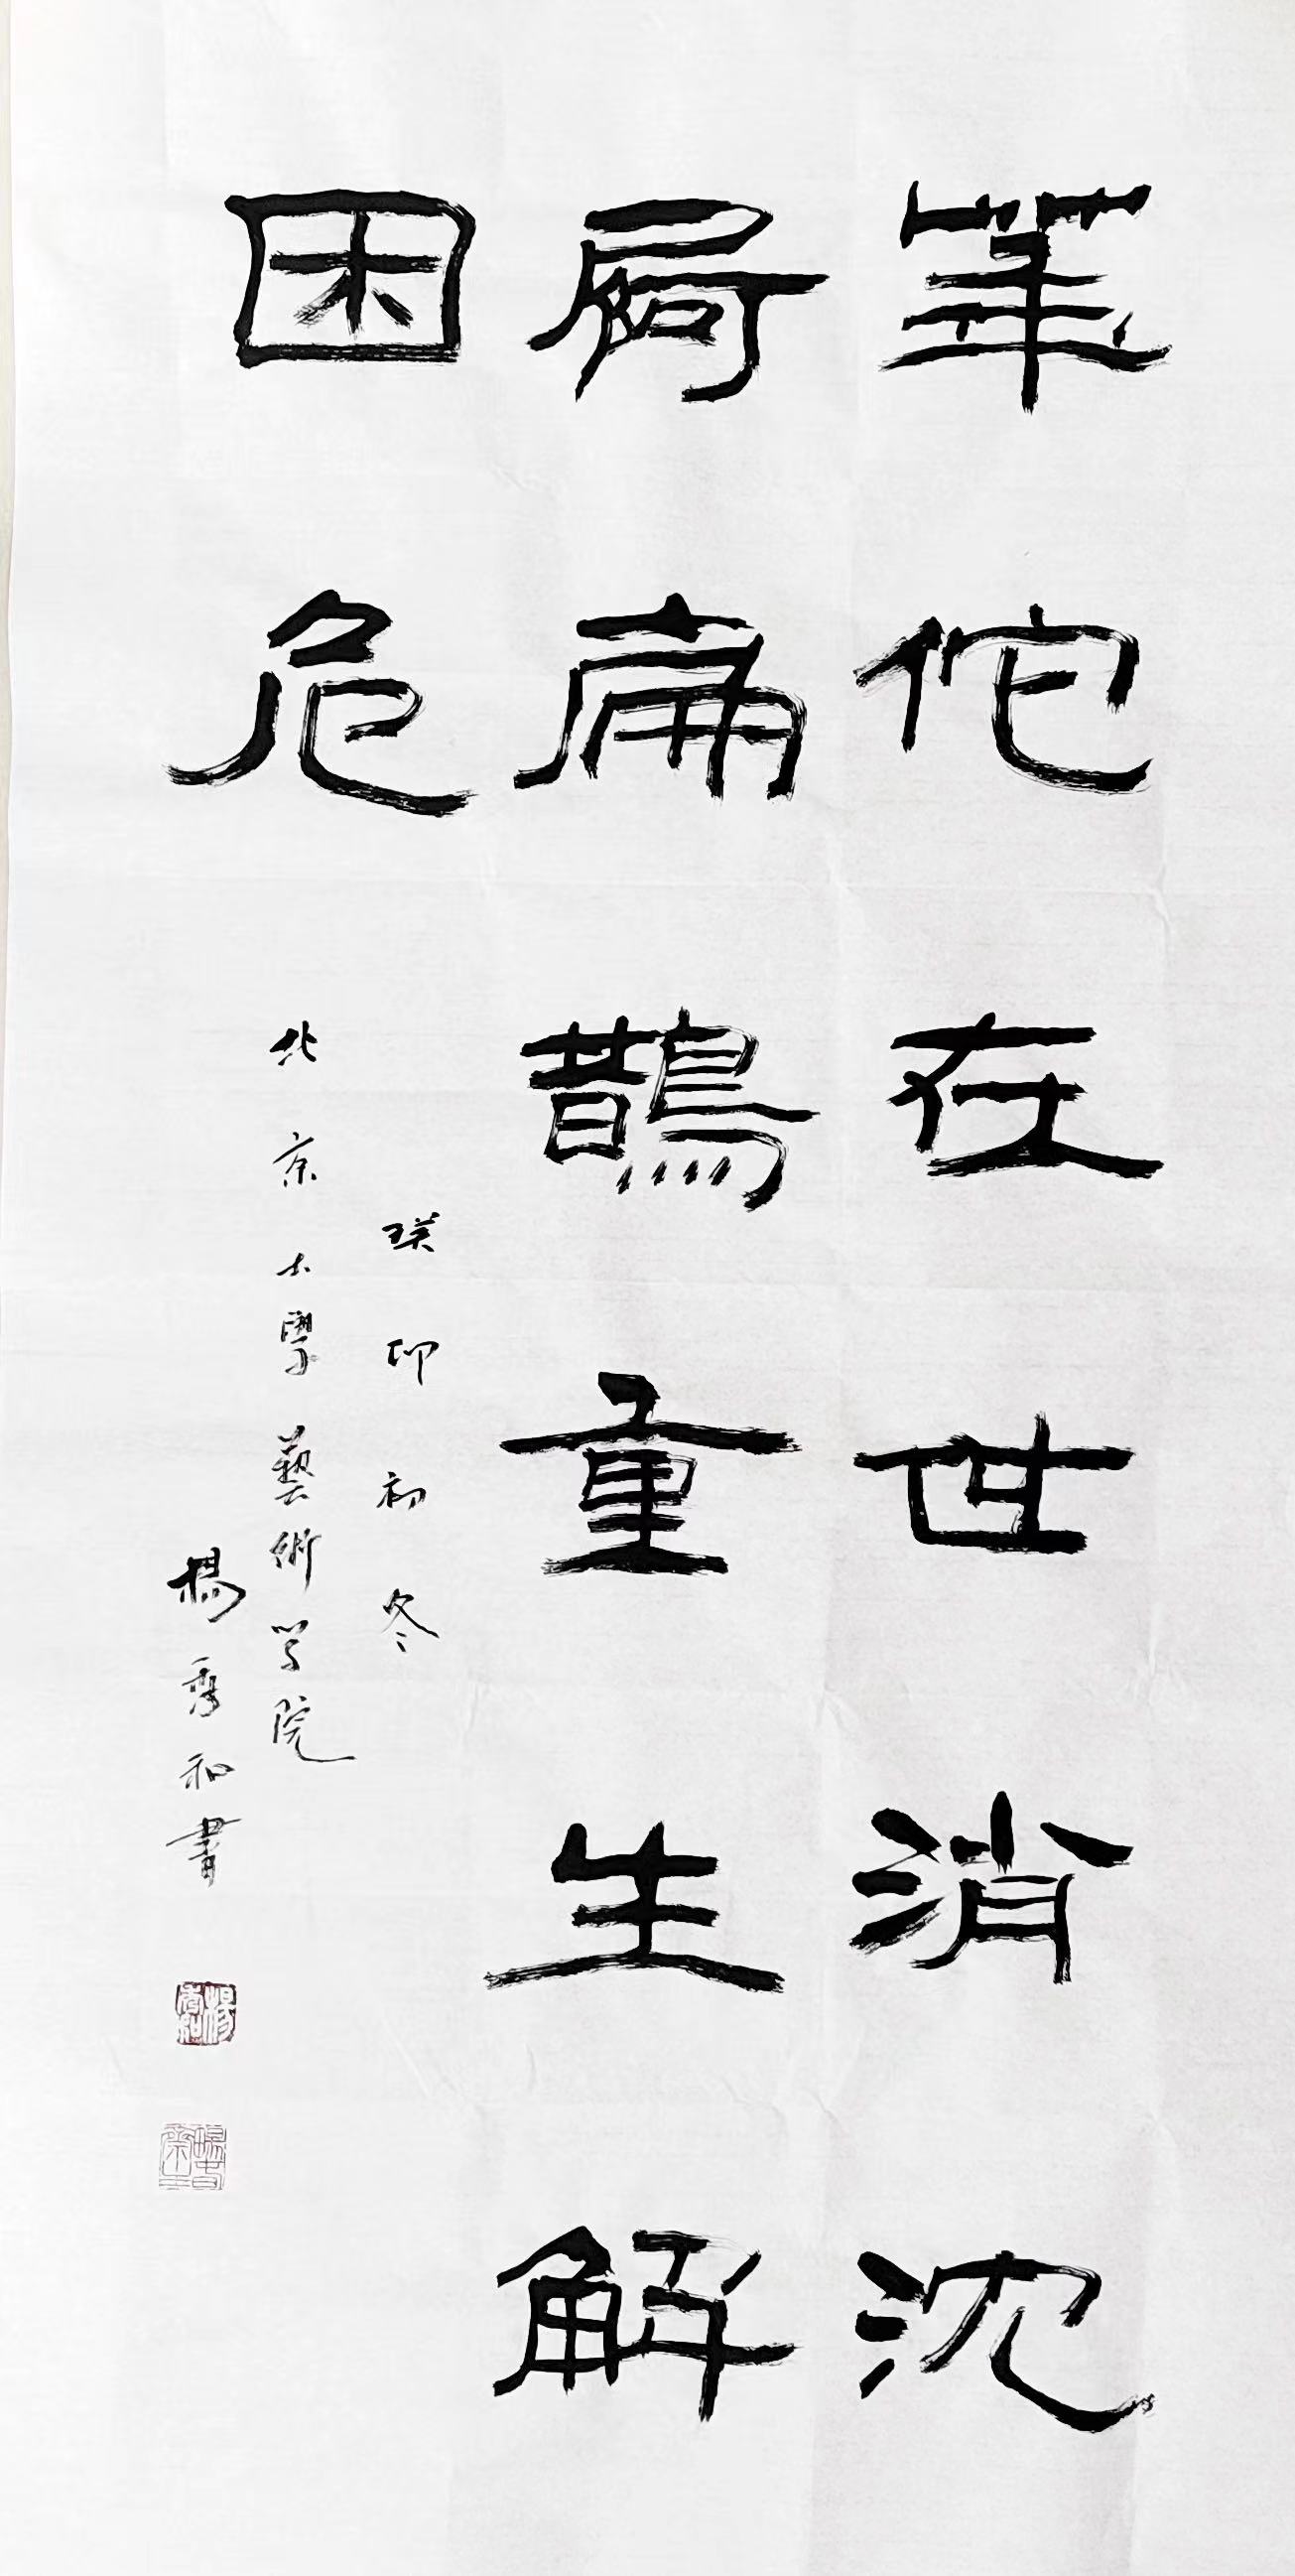 華佗在世消沈
疴扁鵲重生解
困危
癸卯初冬
北京大學藝術学院
楊秀和書